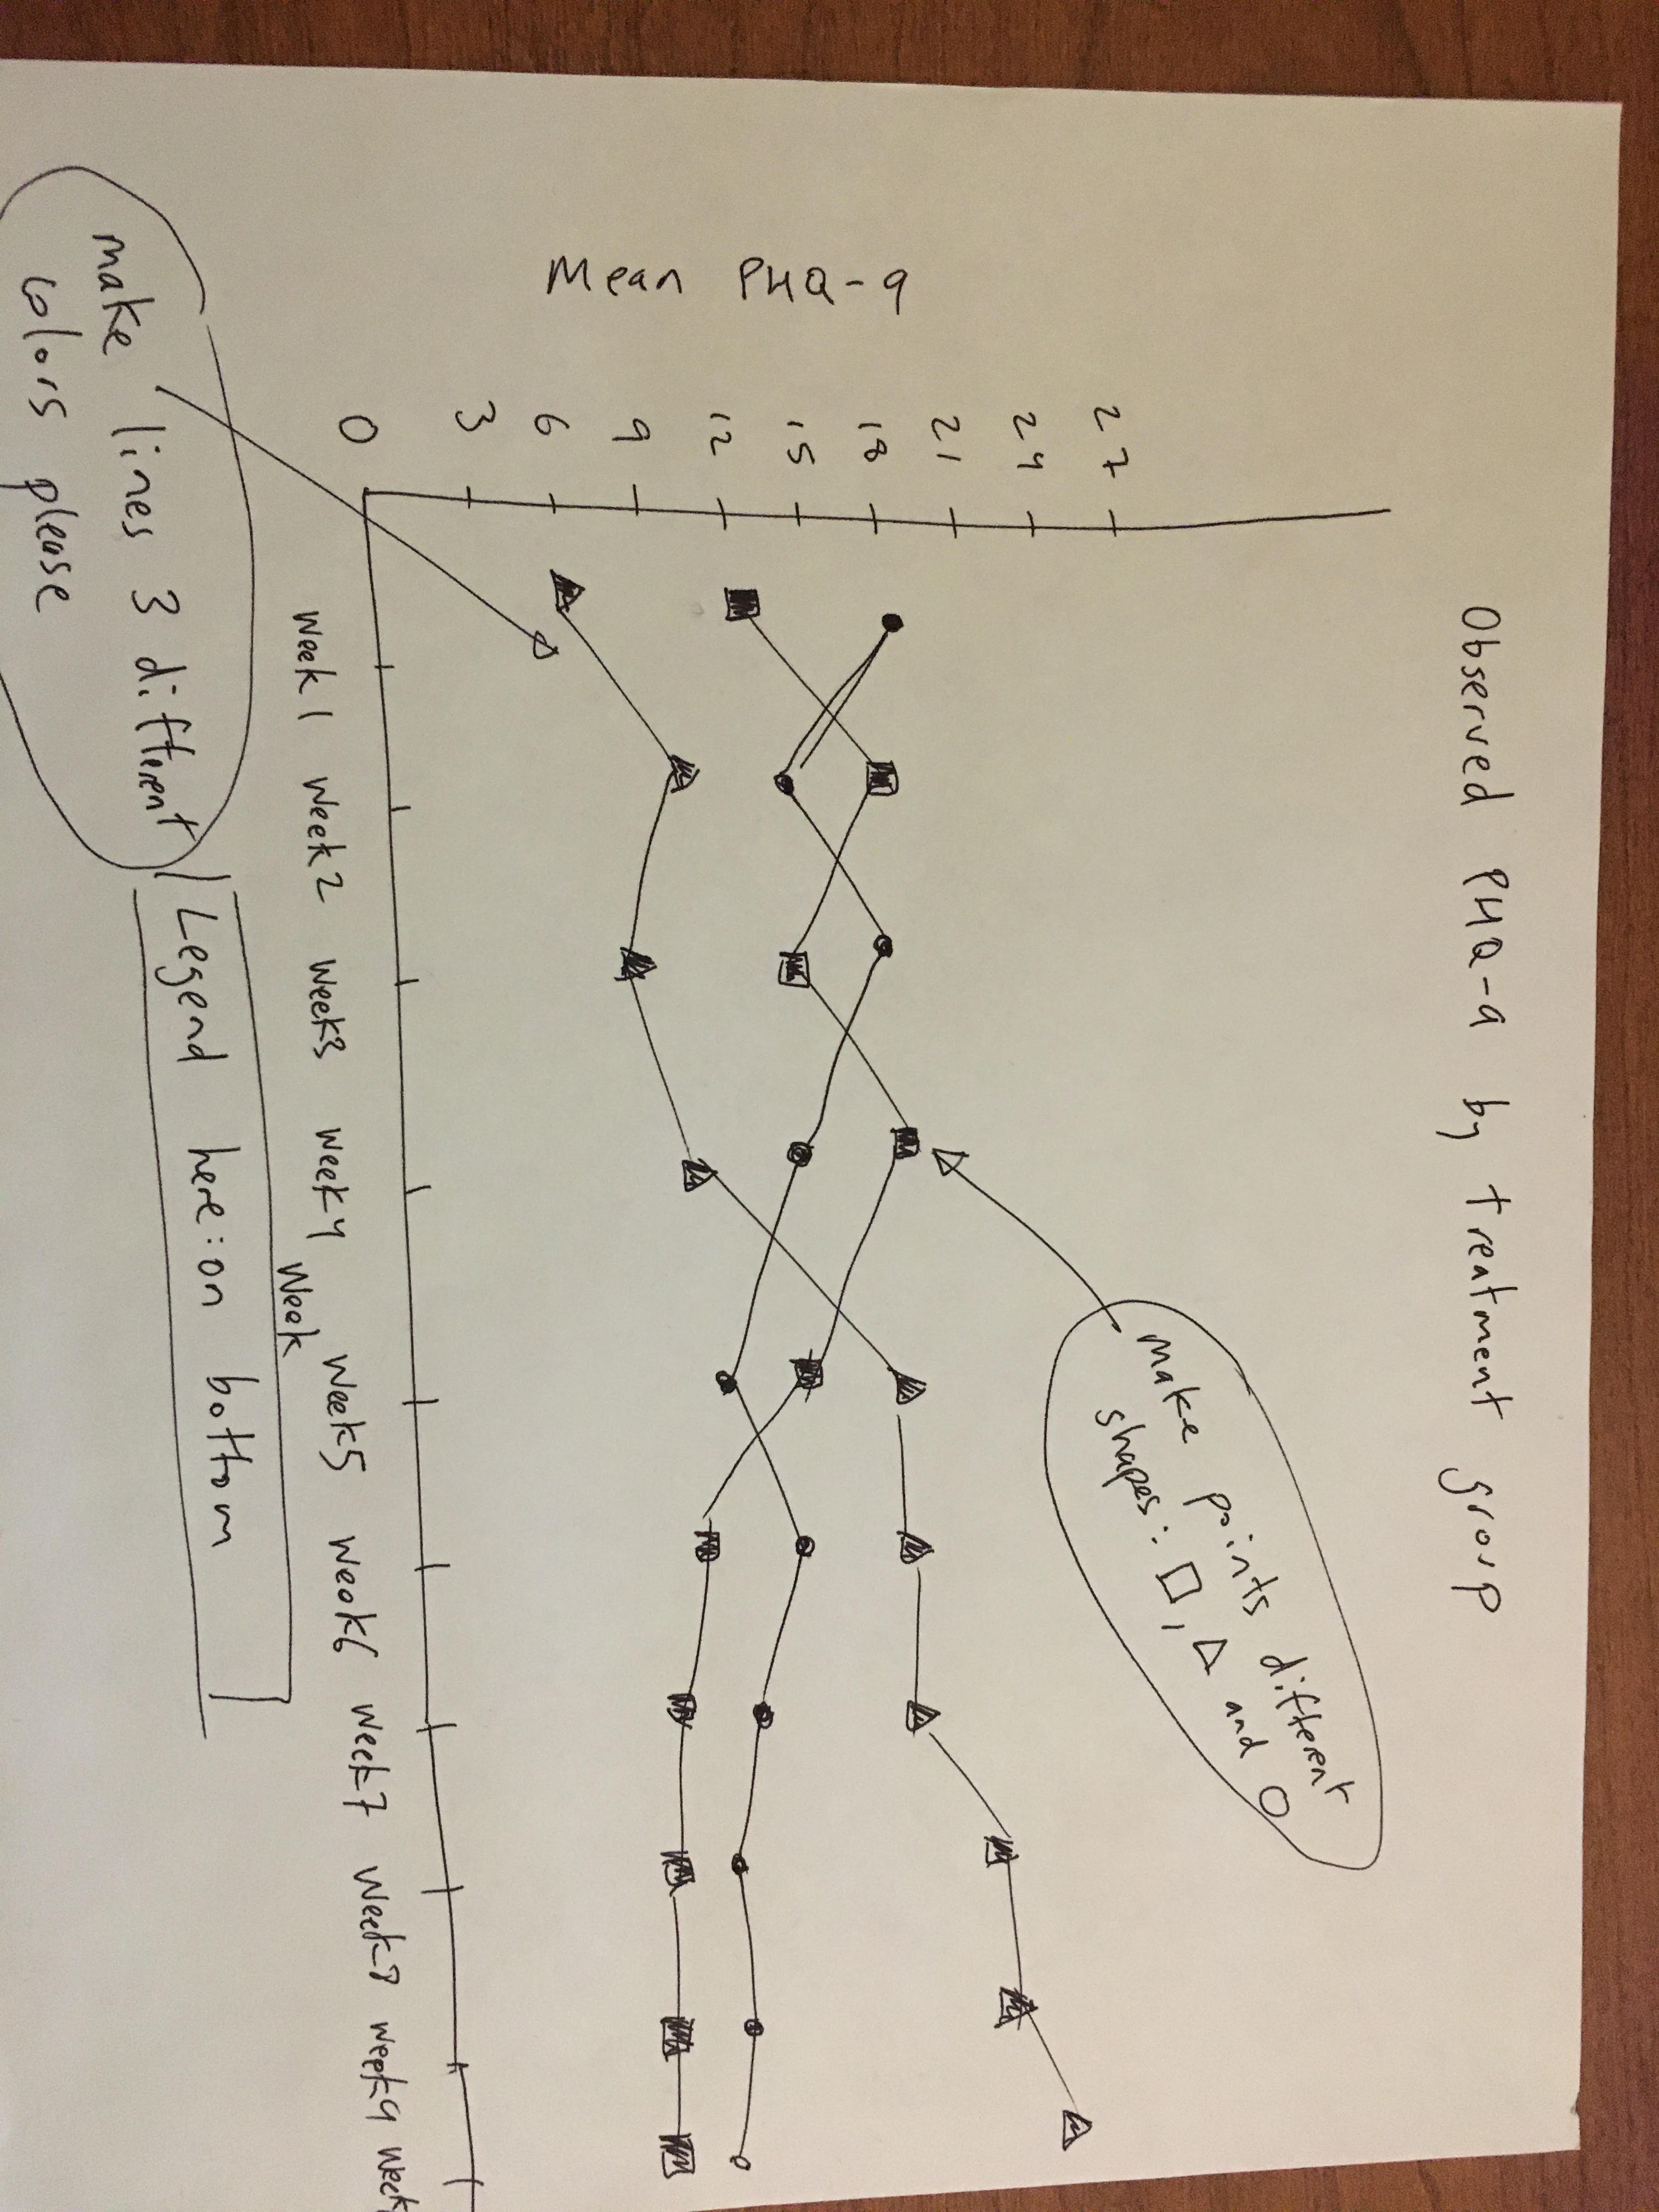 Observed PHQ-9 by treatment group
make points different
shapes: □, △ and ○
27
24
21
18
15
12
9
6
3
0
Mean PHQ-9
Week 1 Week 2 Week3 Week4 Week5 Week6 Week7 Week8 Week9 Week
Week
Legend here: on bottom
make lines 3 different
colors please